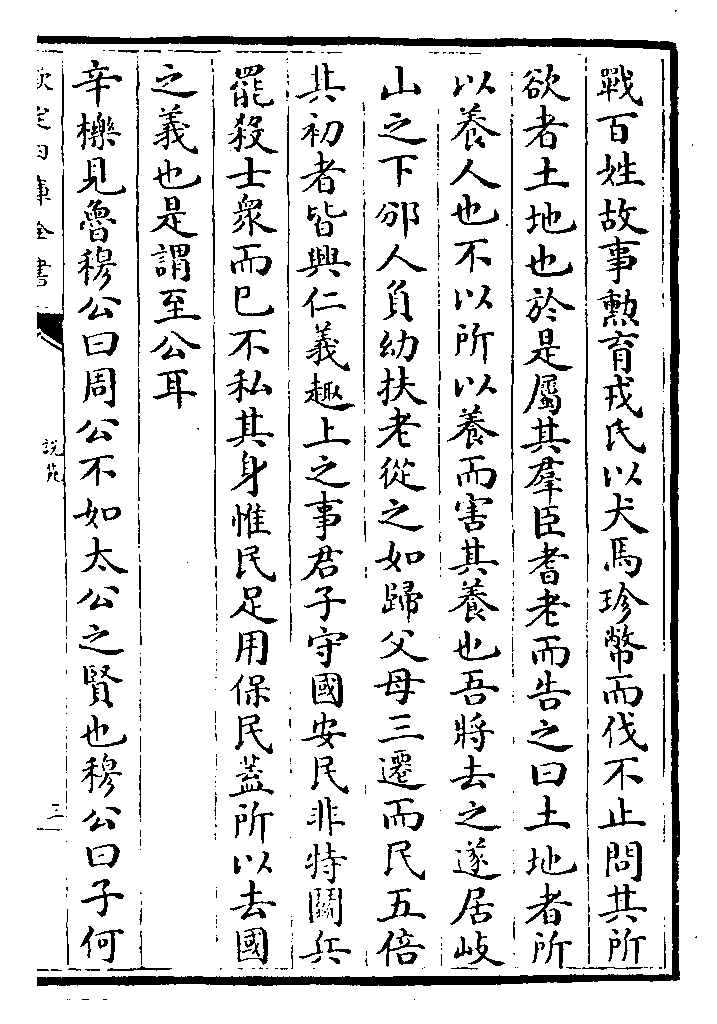 戰百姓故事勲育戎氏以犬馬珍幣而伐不止問其所
欲者土地也於是屬其羣臣耆老而告之曰土地者所
以養人也不以所以養而害其養也吾將去之遂居岐
山之下邠人負幼扶老從之如歸父母三遷而民五倍
其初者皆興仁義趣上之事君子守國安民非特鬭兵
罷殺士衆而已不私其身惟民足用保民蓋所以去國
之義也是謂至公耳
辛櫟見魯穆公曰周公不如太公之賢也穆公曰子何
欽定四庫全書
說苑
三